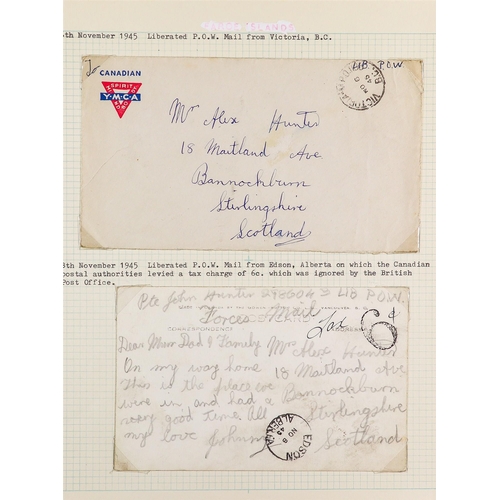 6th November 1945 Liberated P.O.W. Mail from Victoria, B.C.
To
CANADIAN
SPIRIT
Y·M·C·A
LIB P.O.W.
Mr Alex Hunter
18 Maitland Ave
Bannockburn
Stirlingshire
Scotland
8th November 1945 Liberated P.O.W. Mail from Edson, Alberta on which the Canadian
postal authorities levied a tax charge of 6c. which was ignored by the British
Post Office.
Pte John Hunter LIB P.O.W.
Forces Mail
Tax 6d
CORRESPONDENCE
Dear Mum Dad & Family
On my way home
this is the place we
were in and had a
very good time. All
my love Johnny
Mrs Alex Hunter
18 Maitland Ave
Bannockburn
Stirlingshire
Scotland
EDSON
ALBERTA
NO 8
45